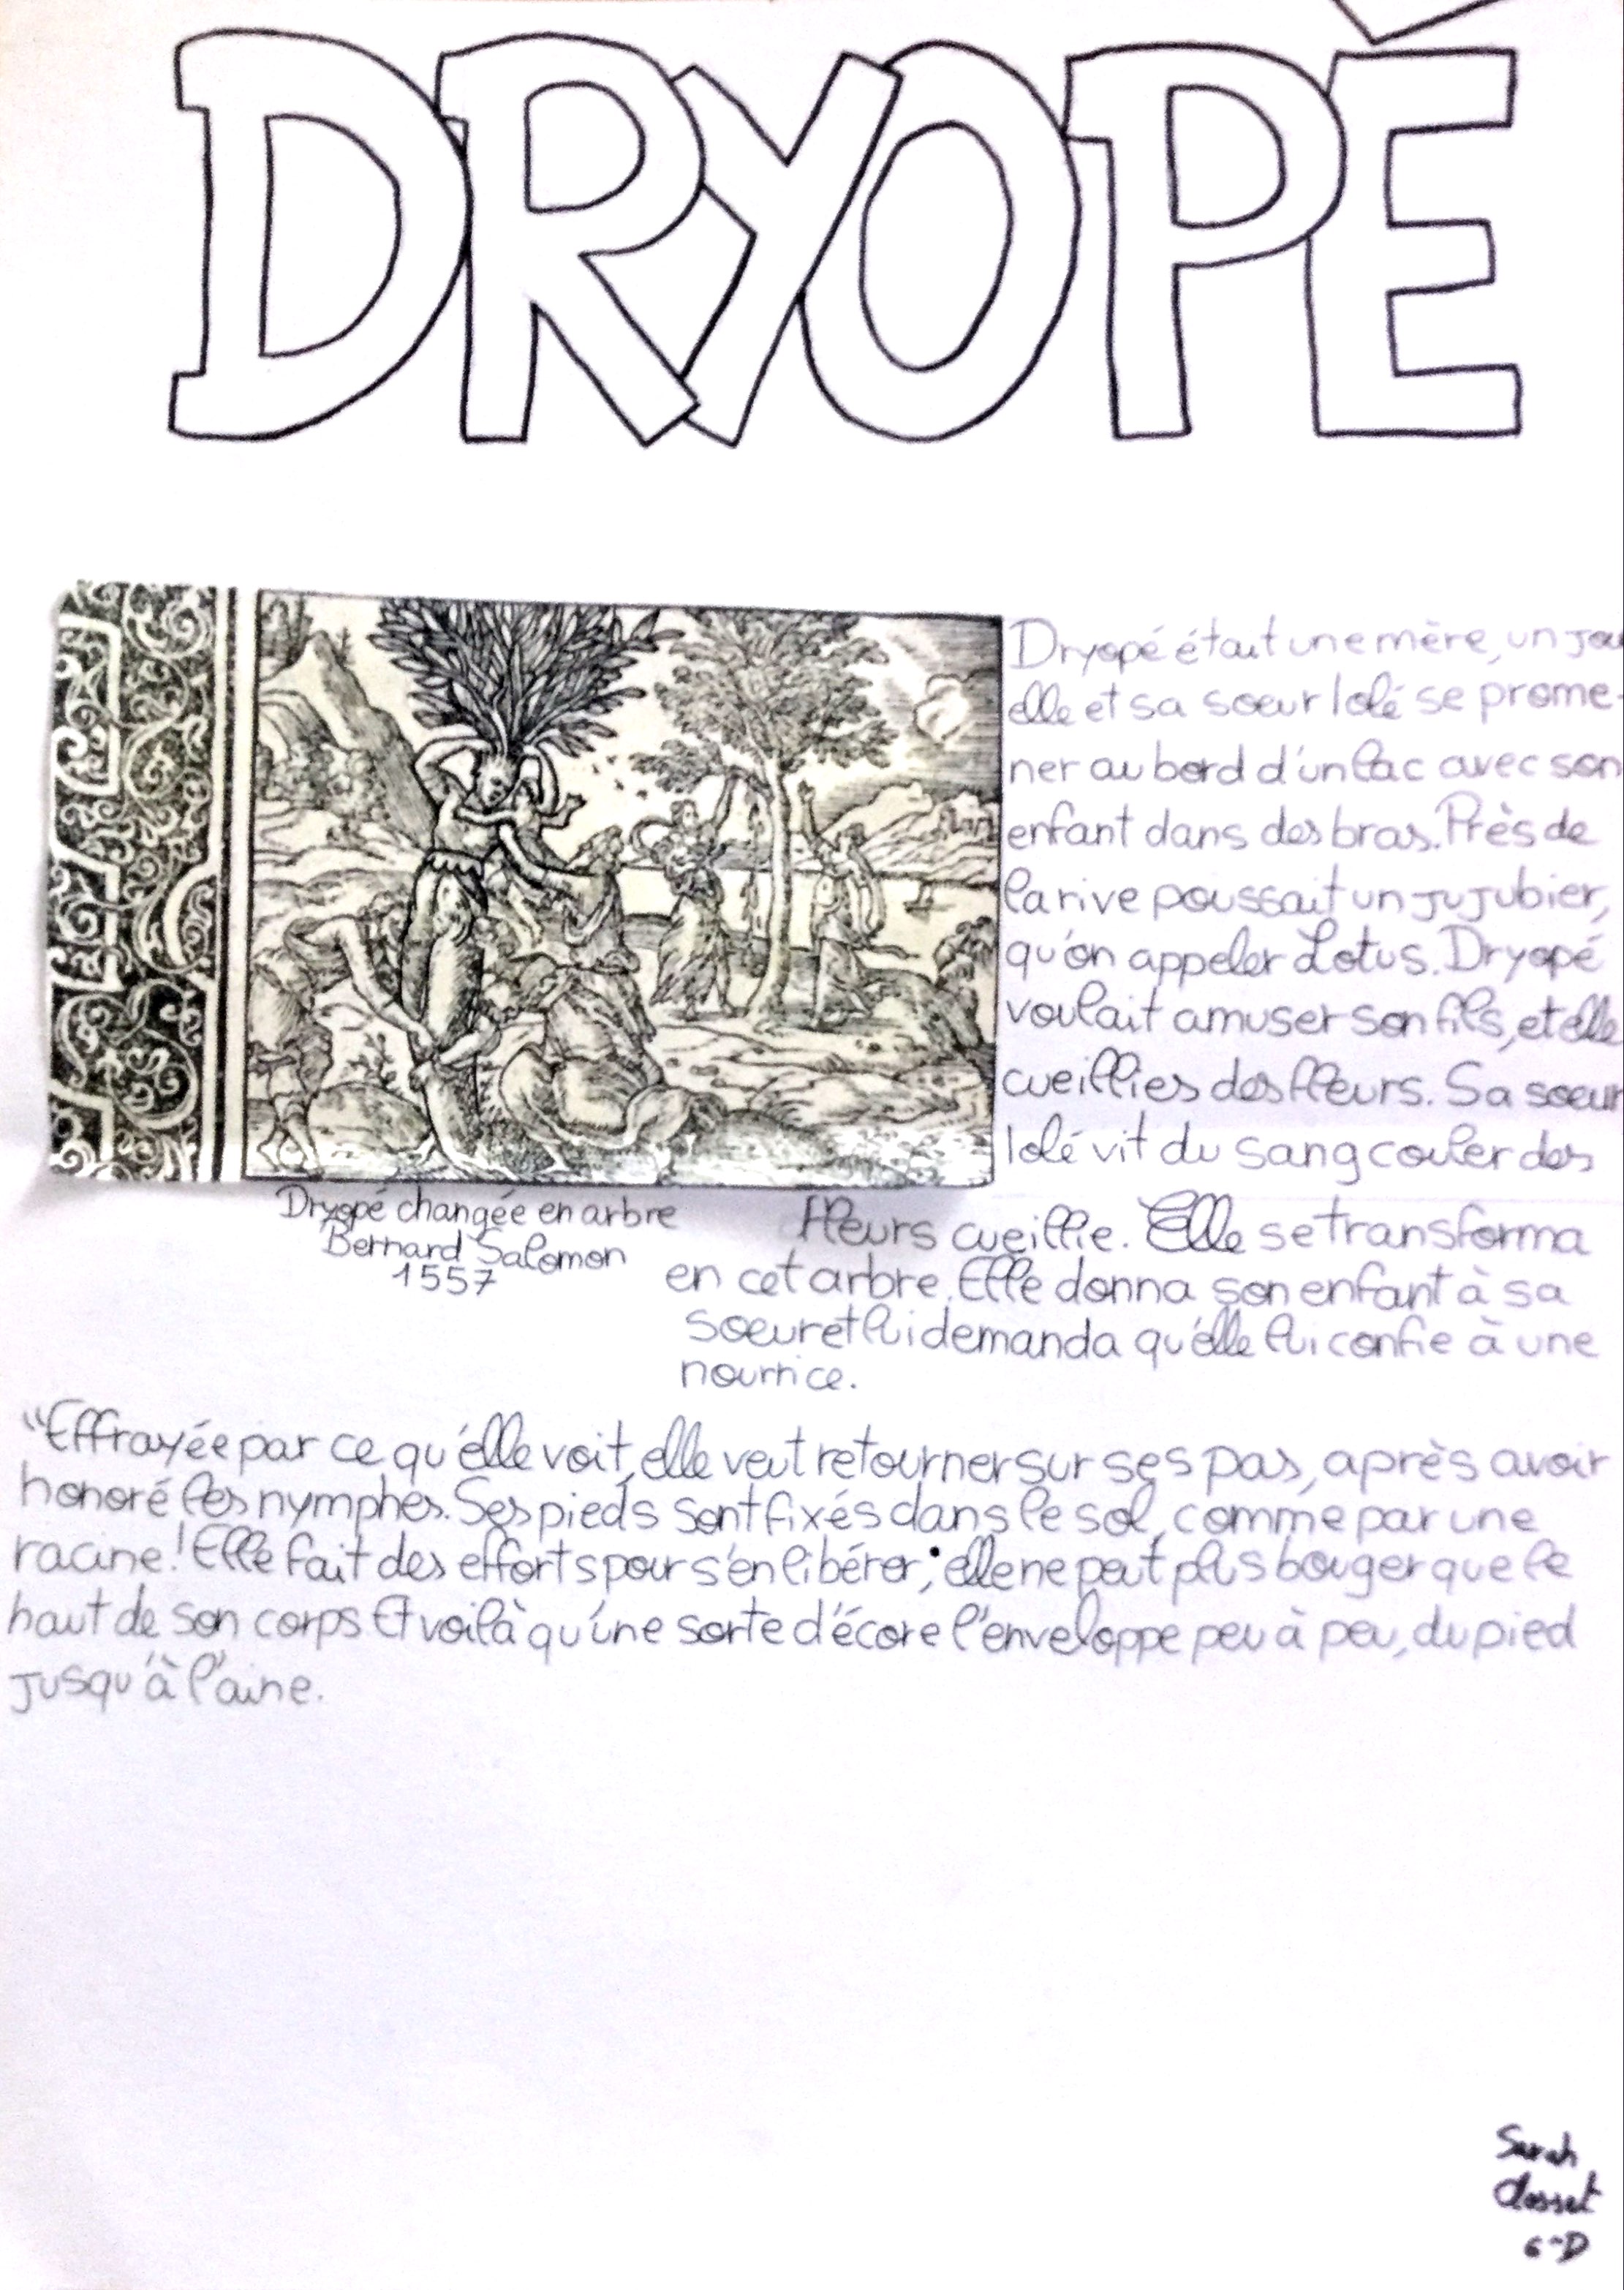 DRYOPÉ
Dryopé était une mère, un jou
elle et sa soeur Iolé se prome
ner au bord d'un lac avec son
enfant dans des bras. Près de
la rive poussait un jujubier,
qu'on appeler Lotus. Dryopé
voulait amuser son fils, et elle
cueillies des fleurs. Sa soeur
Iolé vit du sang couler des
fleurs cueillie. Elle se transforma
en cet arbre. Elle donna son enfant à sa
soeur et lui demanda qu'elle lui confie à une
nourrice.
Dryopé changée en arbre
Bernard Salomon
1557
"Effrayée par ce qu'elle voit, elle veut retourner sur ses pas, après avoir
honoré les nymphes. Ses pieds sont fixés dans le sol, comme par une
racine! Elle fait des efforts pour s'en libérer; elle ne peut plus bouger que le
haut de son corps Et voilà qu'une sorte d'écore l'enveloppe peu à peu, du pied
jusqu'à l'aine.
Sarah
Closset
6-D